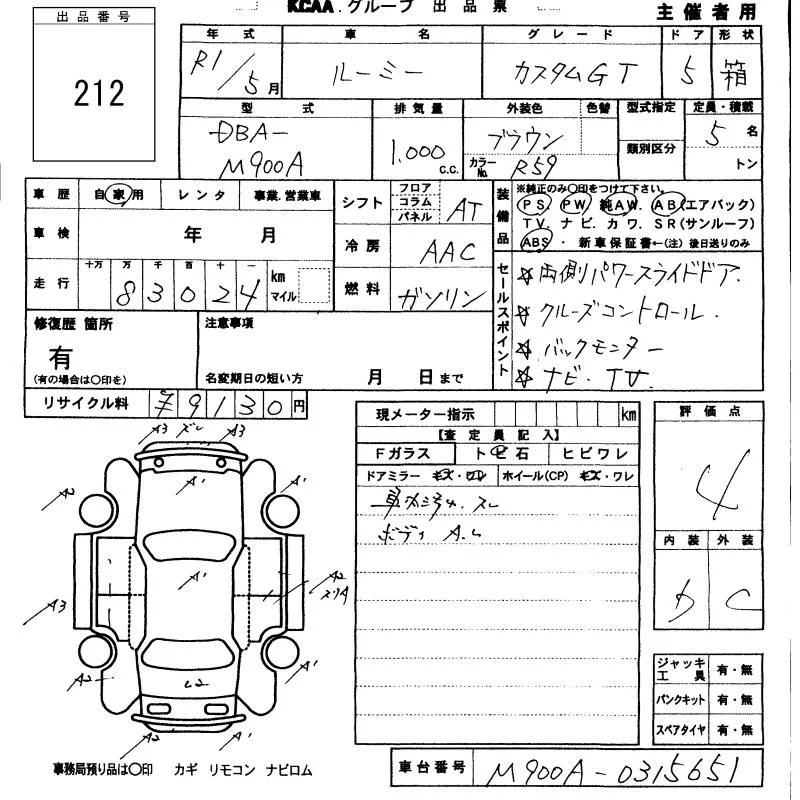 KCAA.グループ 出品票
主催者用
出品番号
212
年式 車名 グレード ドア 形状
R1/5月 ルーミー カスタムGT 5 箱
型式 排気量 外装色 色替 型式指定 定員・積載
DBA- ブラウン 5名
M900A 1.000c.c. カラーNo. R59 類別区分 トン
車歴 自家用 レンタ 事業.営業車
シフト フロア コラム パネル AT
装備品 ※純正のみ○印をつけて下さい。
PS PW 純AW. AB(エアバック)
TV. ナビ. カワ. SR(サンルーフ)
ABS・新車保証書←(注)後日送りのみ
車検 年 月
冷房 AAC
走行 十万 万 千 百 十 一 km マイル
83024
燃料 ガソリン
セールスポイント
☆両側パワースライドドア.
☆クルーズコントロール.
☆バックモニター
☆ナビ.TV.
修復歴 箇所
有
(有の場合は○印を)
注意事項
名変期日の短い方 月 日まで
リサイクル料 ¥9130円
現メーター指示 km
【査定員記入】
Fガラス トビ石 ヒビワレ
ドアミラー キズ・ワレ ホイール(CP) キズ・ワレ
ボディ A.
評価点
4
内装 外装
b C
A3 スレ A3
A2 A1 A1
A1
A3 A2
スリA
A2 L2 A1
A2 A1
ジャッキ工具 有・無
パンクキット 有・無
スペアタイヤ 有・無
事務局預り品は○印 カギ リモコン ナビロム
車台番号 M900A-0315651